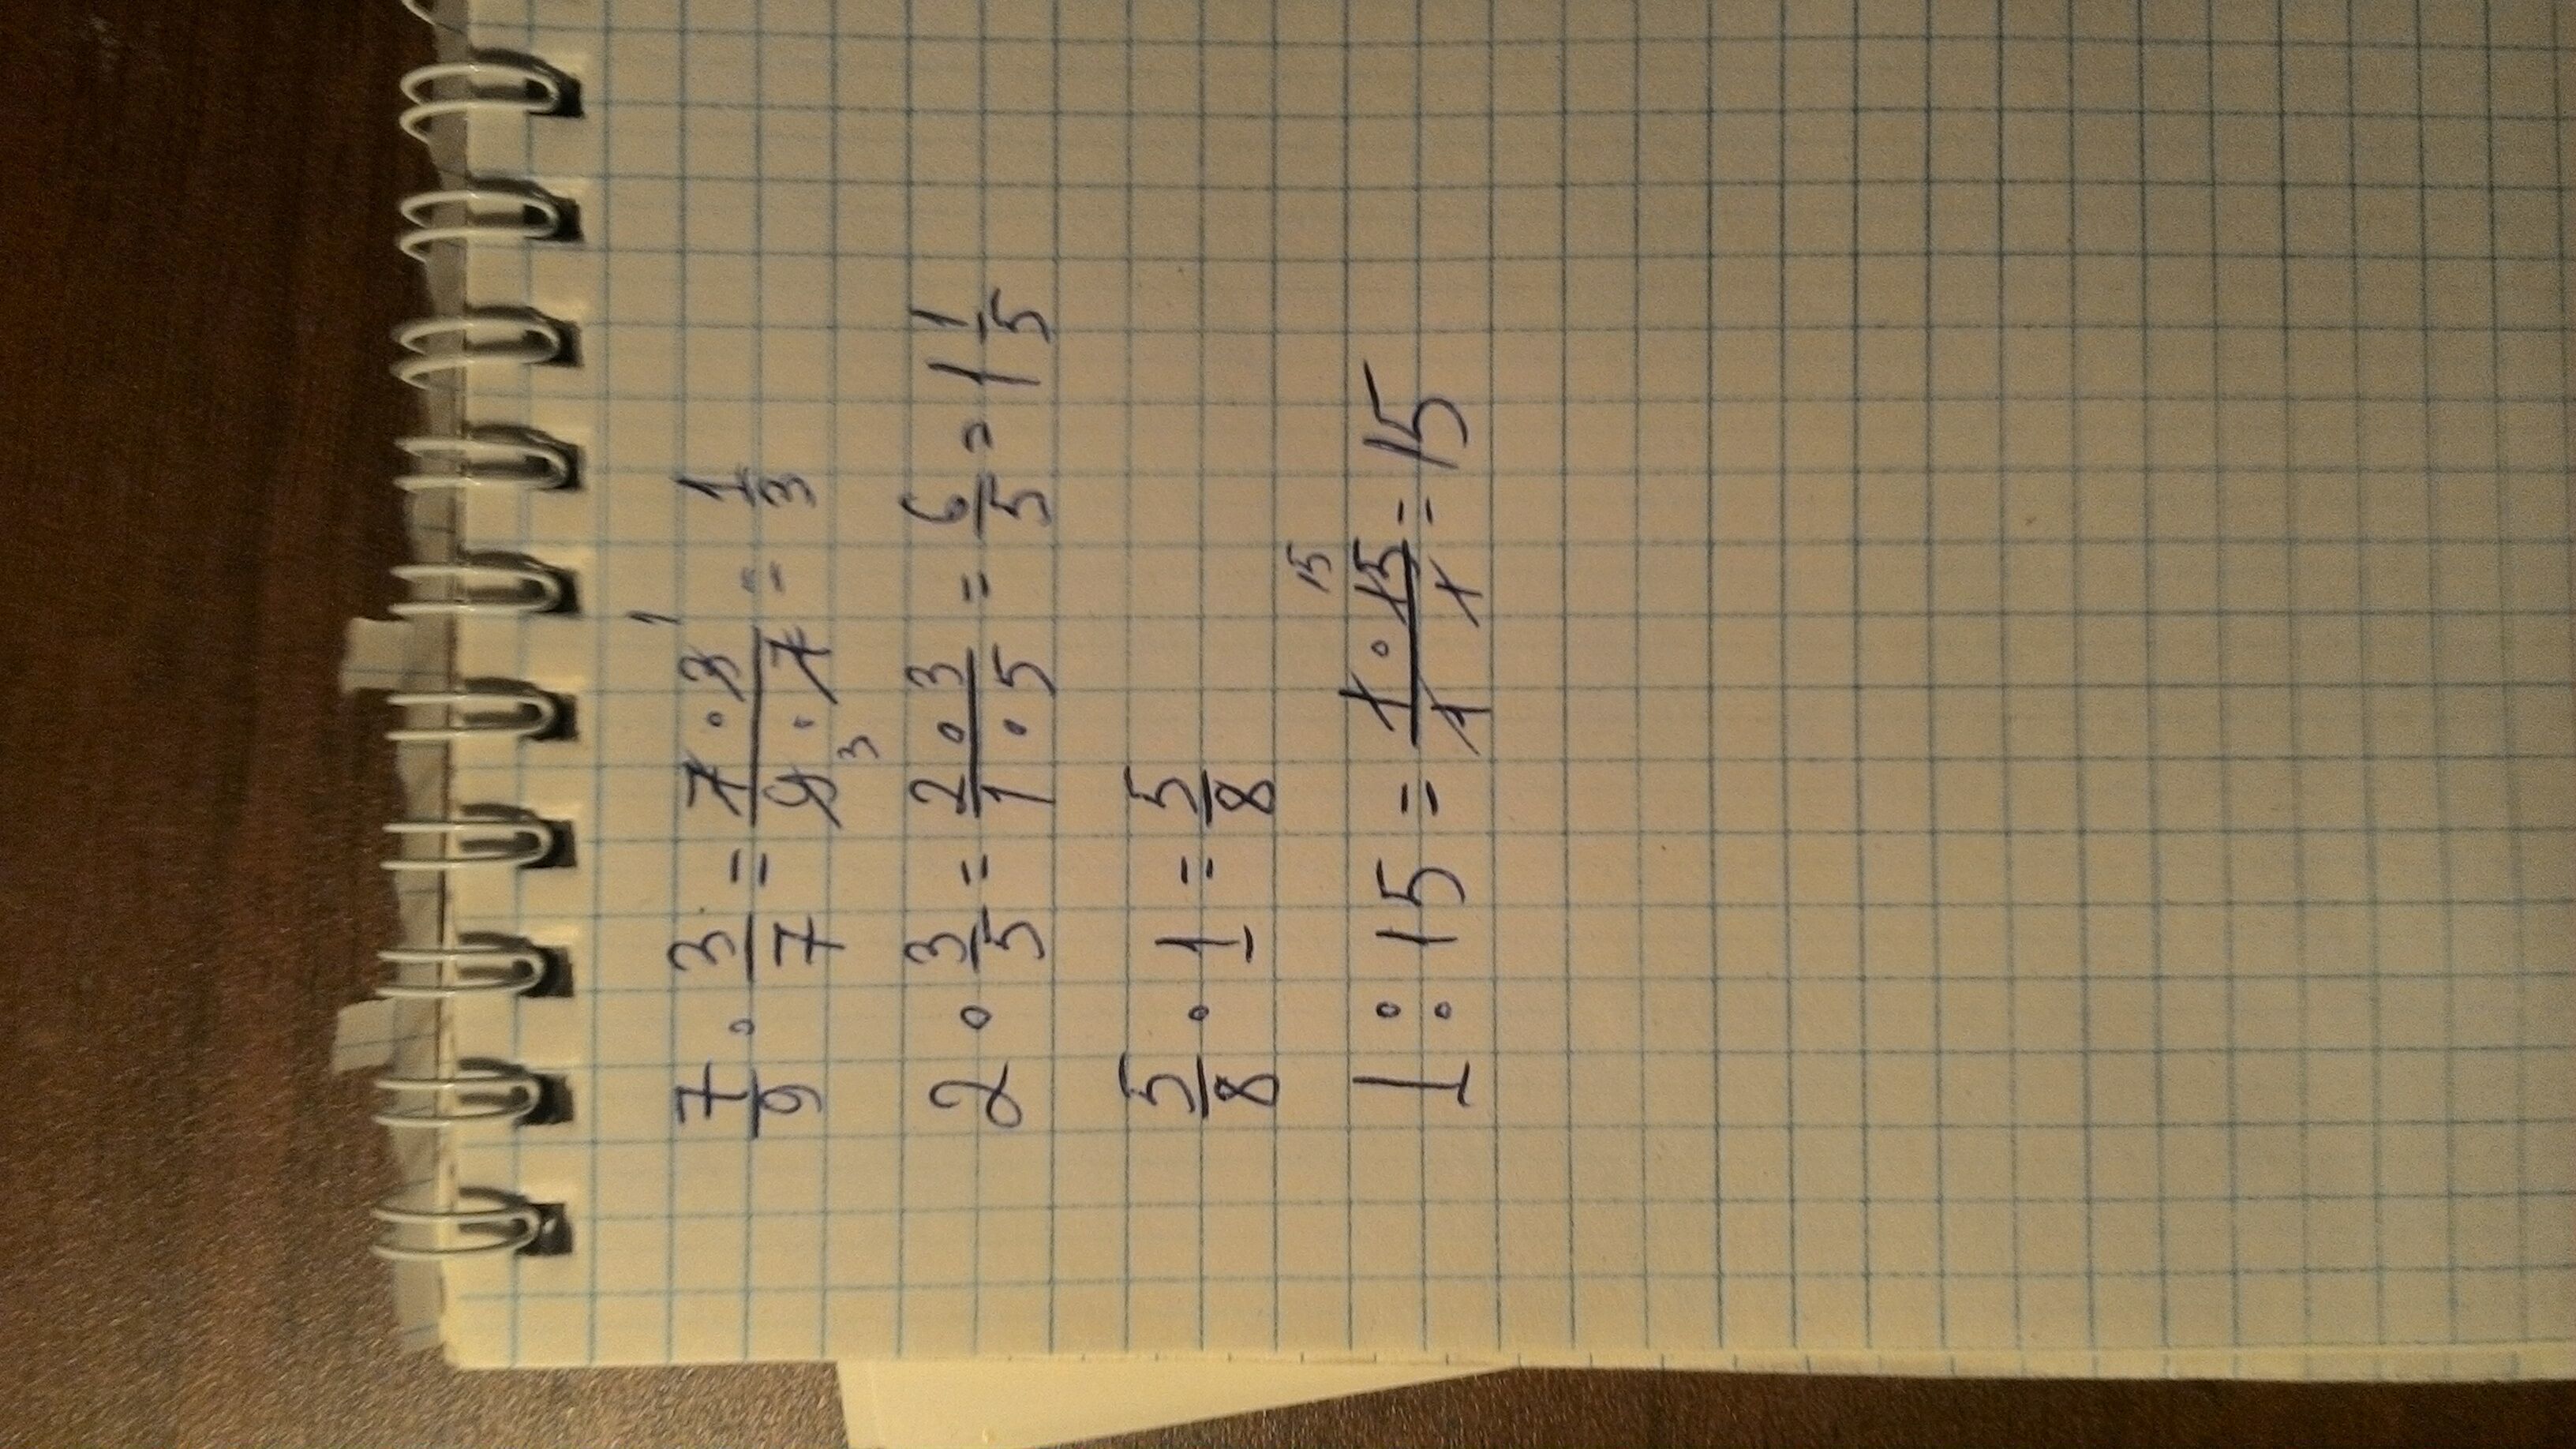 7/9 · 3/7 = 7·3/9·7 1 3 = 1/3
2 · 3/5 = 2·3/1·5 = 6/5 = 1 1/5
5/8 · 1 = 5/8
1 : 15 = 1·15/1·1 15 = 15